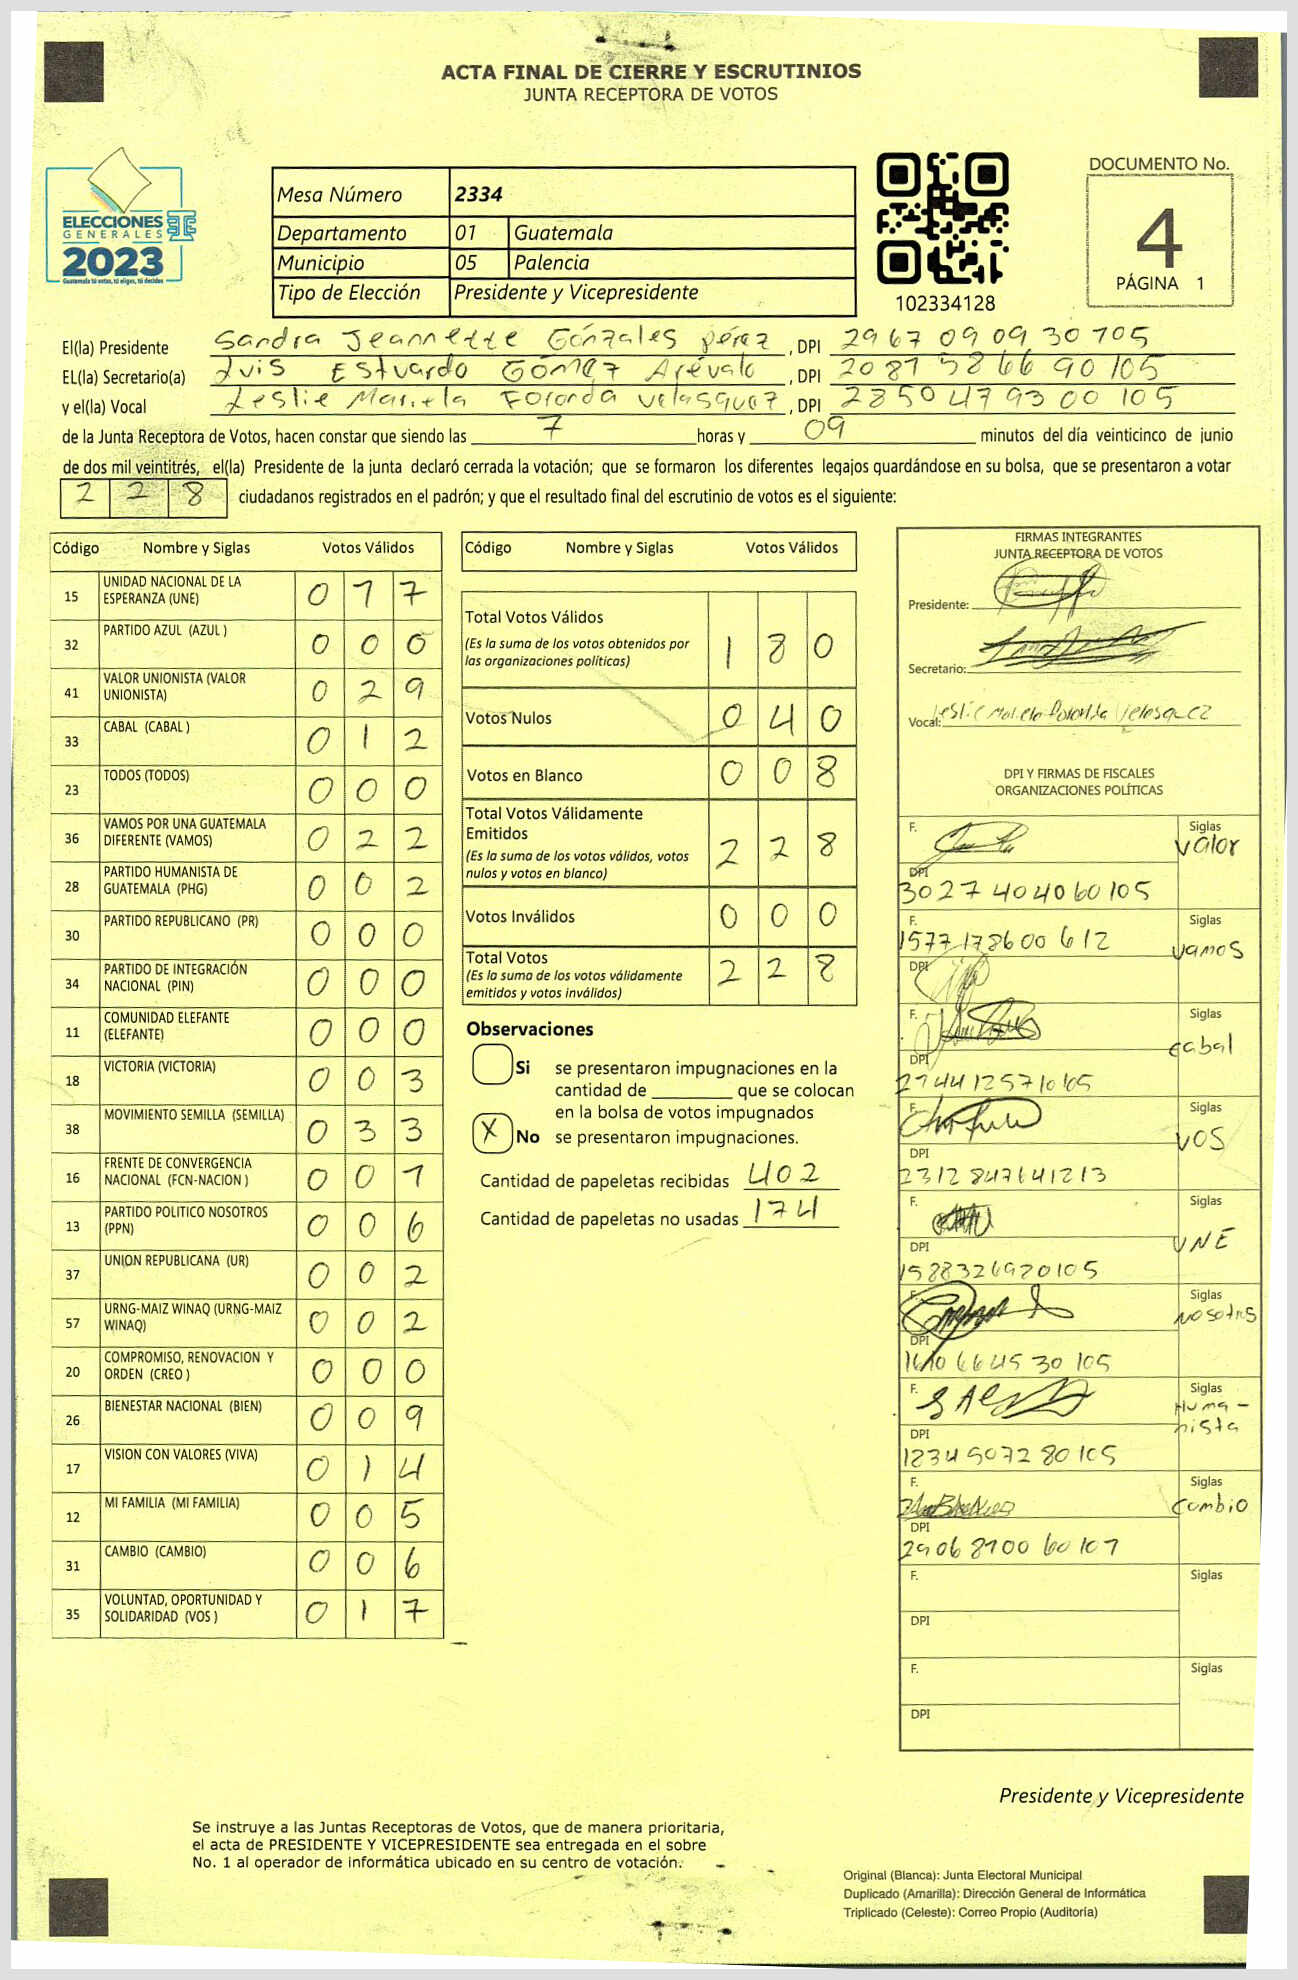 ACTA FINAL DE CIERRE Y ESCRUTINIOS
JUNTA RECEPTORA DE VOTOS
ELECCIONES
GENERALES
2023
Guatemala tú votas, tú eliges, tú decides
Mesa Número 2334
Departamento 01 Guatemala
Municipio 05 Palencia
Tipo de Elección Presidente y Vicepresidente
102334128
DOCUMENTO No.
4
PÁGINA 1
El(la) Presidente Sandra Jeannette Gónzales pérez , DPI 2967 09 09 30 705
EL(la) Secretario(a) Luis Estuardo Gómez Arévalo , DPI 2087 58 66 90 105
y el(la) Vocal Leslie Mariela Foronda Velasquez , DPI 2850 47 93 00 105
de la Junta Receptora de Votos, hacen constar que siendo las 7 horas y 09 minutos del día veinticinco de junio
de dos mil veintitrés, el(la) Presidente de la junta declaró cerrada la votación; que se formaron los diferentes legajos guardándose en su bolsa, que se presentaron a votar
2 2 8 ciudadanos registrados en el padrón; y que el resultado final del escrutinio de votos es el siguiente:
Código Nombre y Siglas Votos Válidos
15 UNIDAD NACIONAL DE LA ESPERANZA (UNE) 0 1 7
32 PARTIDO AZUL (AZUL ) 0 0 0
41 VALOR UNIONISTA (VALOR UNIONISTA) 0 2 9
33 CABAL (CABAL ) 0 1 2
23 TODOS (TODOS) 0 0 0
36 VAMOS POR UNA GUATEMALA DIFERENTE (VAMOS) 0 2 2
28 PARTIDO HUMANISTA DE GUATEMALA (PHG) 0 0 2
30 PARTIDO REPUBLICANO (PR) 0 0 0
34 PARTIDO DE INTEGRACIÓN NACIONAL (PIN) 0 0 0
11 COMUNIDAD ELEFANTE (ELEFANTE) 0 0 0
18 VICTORIA (VICTORIA) 0 0 3
38 MOVIMIENTO SEMILLA (SEMILLA) 0 3 3
16 FRENTE DE CONVERGENCIA NACIONAL (FCN-NACION ) 0 0 1
13 PARTIDO POLITICO NOSOTROS (PPN) 0 0 6
37 UNION REPUBLICANA (UR) 0 0 2
57 URNG-MAIZ WINAQ (URNG-MAIZ WINAQ) 0 0 2
20 COMPROMISO, RENOVACION Y ORDEN (CREO ) 0 0 0
26 BIENESTAR NACIONAL (BIEN) 0 0 9
17 VISION CON VALORES (VIVA) 0 1 4
12 MI FAMILIA (MI FAMILIA) 0 0 5
31 CAMBIO (CAMBIO) 0 0 6
35 VOLUNTAD, OPORTUNIDAD Y SOLIDARIDAD (VOS ) 0 1 7
Código Nombre y Siglas Votos Válidos
Total Votos Válidos 1 8 0
(Es la suma de los votos obtenidos por
las organizaciones políticas)
Votos Nulos 0 4 0
Votos en Blanco 0 0 8
Total Votos Válidamente
Emitidos 2 2 8
(Es la suma de los votos válidos, votos
nulos y votos en blanco)
Votos Inválidos 0 0 0
Total Votos 2 2 8
(Es la suma de los votos válidamente
emitidos y votos inválidos)
Observaciones
Si se presentaron impugnaciones en la
cantidad de ________ que se colocan
en la bolsa de votos impugnados
X No se presentaron impugnaciones.
Cantidad de papeletas recibidas 402
Cantidad de papeletas no usadas 174
FIRMAS INTEGRANTES
JUNTA RECEPTORA DE VOTOS
Presidente:
Secretario:
Vocal: Leslie Mariela Foronda Velasquez
DPI Y FIRMAS DE FISCALES
ORGANIZACIONES POLÍTICAS
F. Siglas valor
DPI 3027 4040 60105
F. 1577 17860 0 612 Siglas vamos
DPI
F. Siglas cabal
DPI 2744 12571 0105
F. Siglas VOS
DPI 2312 84764 1213
F. Siglas UNE
DPI 1588326920105
F. Siglas NOSOTROS
DPI 1610 6645 30 105
F. Siglas Humanista
DPI 1234 5072 80 105
F. Siglas Cambio
DPI 2906 8700 60 107
F. Siglas
DPI
F. Siglas
DPI
Presidente y Vicepresidente
Se instruye a las Juntas Receptoras de Votos, que de manera prioritaria,
el acta de PRESIDENTE Y VICEPRESIDENTE sea entregada en el sobre
No. 1 al operador de informática ubicado en su centro de votación.
Original (Blanca): Junta Electoral Municipal
Duplicado (Amarilla): Dirección General de Informática
Triplicado (Celeste): Correo Propio (Auditoría)